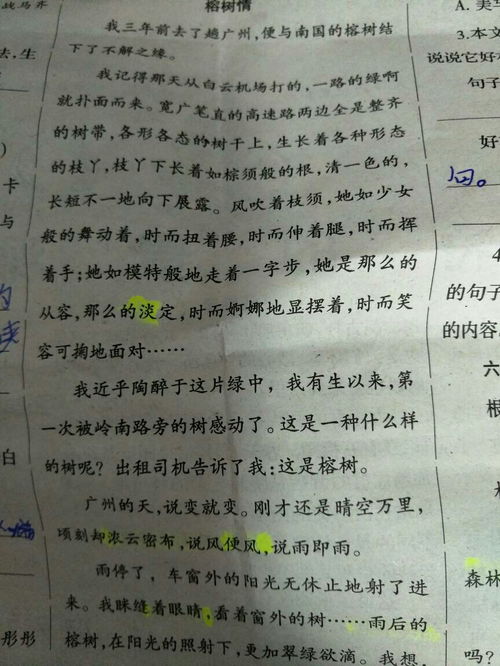 榕树情
我三年前去了趟广州,便与南国的榕树结
下了不解之缘。
我记得那天从白云机场打的,一路的绿啊
就扑面而来。宽广笔直的高速路两边全是整齐
的树带,各形各态的树干上,生长着各种形态
的枝丫,枝丫下长着如棕须般的根,清一色的,
长短不一地向下展露。风吹着枝须,她如少女
般的舞动着,时而扭着腰,时而伸着腿,时而挥
着手;她如模特般地走着一字步,她是那么的
从容,那么的淡定,时而婀娜地显摆着,时而笑
容可掬地面对……
我近乎陶醉于这片绿中,我有生以来,第
一次被岭南路旁的树感动了。这是一种什么样
的树呢?出租司机告诉了我:这是榕树。
广州的天,说变就变。刚才还是晴空万里,
顷刻却浓云密布,说风便风,说雨即雨。
雨停了,车窗外的阳光无休止地射了进
来。我眯缝着眼睛,看着窗外的树……雨后的
榕树,在阳光的照射下,更加翠绿欲滴。我想
去,生
卡
与
白
彤彤
A. 美
3.本文
说说它好
句子
好
4
的句子
的内容
六
根
森林
吗?